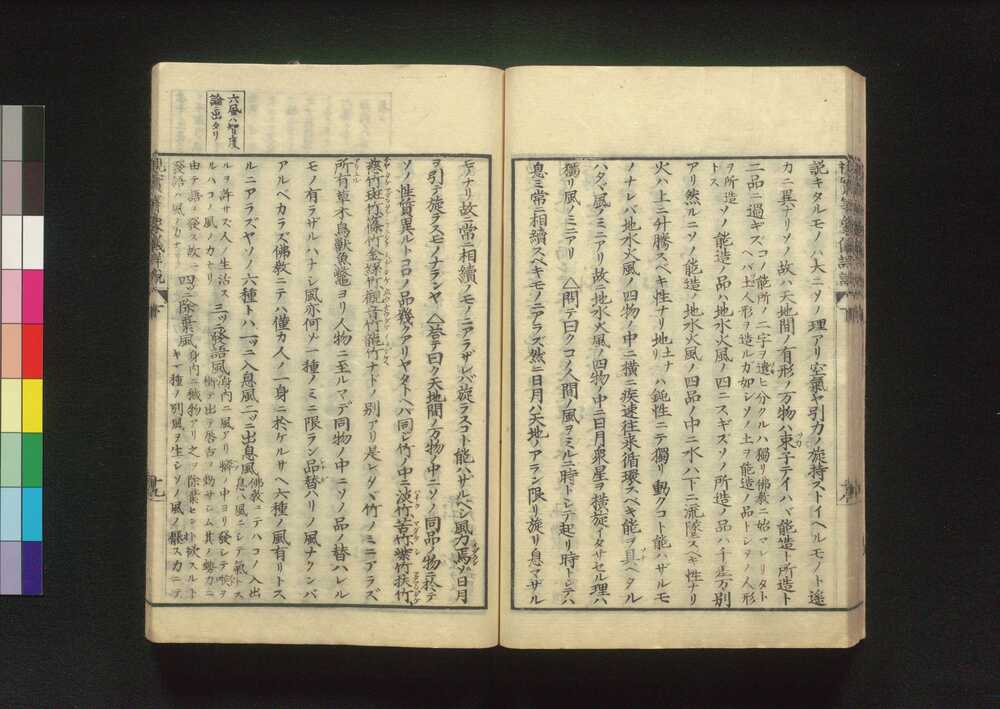 説キタルモノハ大ニソノ理アリ空氣ヤ引力ノ旋持ストイヘルモノト遙
カニ異ナリソノ故ハ天地間ノ有形ノ万物ハ束子テイハバ能造ト所造ト
ノ二品ニ過ギズコノ能所ノ二字ヲ遣ヒ分クルハ獨リ佛教ニ始マレリタト
ヘバ土人形ヲ造ルガ如シソノ土ヲ能造ノ品トシソノ人形
ヲ所造
トスソノ能造ノ品ハ地水火風ノ四ニスギズソノ所造ノ品ハ千差万別
アリ然ルニソノ能造ノ地水火風ノ四品ノ中ニ水ハ下ニ流墜スヘキ性ナリ
火ハ上ニ升騰スベキ性ナリ地土ナリハ鈍性ニテ獨リ動クコト能ハザルモ
ノナレバ地水火風ノ四物ノ中ニ横ニ疾速往来循環スベキ能ヲ具ヘタル
ハタダ風ノミニアリ故ニ地水火風ノ四物ノ中ニ日月衆星ヲ横旋イタサセル理ハ
獨リ風ノミニアリ △問テ曰クコノ人間ノ風ヲミルニ時トシテ起リ時トシテハ
息ミ常ニ相續スベキモノニアラズ然ニ日月ハ天地ノアラン限リ旋リ息マサル
モノナリ故ニ常ニ相續ノモノニアラザレバ旋ラスコト能ハザルベシ風力焉ゾ日月
ヲ引テ旋ラスモノナランヤ △答テ曰ク天地間ノ万物ノ中ニソノ同品ノ物ニ於テ
ソノ性質異ルトコロノ品幾クアリヤタトヘバ同ジ竹ノ中ニ淡竹苦竹紫竹扶竹
慈竹斑竹篠竹金絲竹觀音竹龍竹ナトノ別アリ是レタダ竹ノミニアラズ
所有草木鳥獸魚鼈ヨリ人物ニ至ルマデ同物ノ中ニソノ品ノ替ハレル
モノ有ラザルハナシ風亦何ゾ一種ノミニ限ラン品替ハリノ風ナクンバ
アルベカラズ佛教ニテハ僅カ人ノ一身ニ於ケルサヘ六種ノ風有リトス
ルニアラズヤソノ六種トハ一ツニ入息風二ツニ出息風佛教ニテハコノ入出
ノ息ハ風ニシテ氣トス
ルヲ許サズ人ノ生活ス
ルハコノ風ノカナリ三ツニ發語風
由テ語ヲ發ス故ニ四ツニ除棄風身内ニ穢物アリ之ヲ除棄セント欲スルト
六風ハ智度
論ニ出タリ
十九